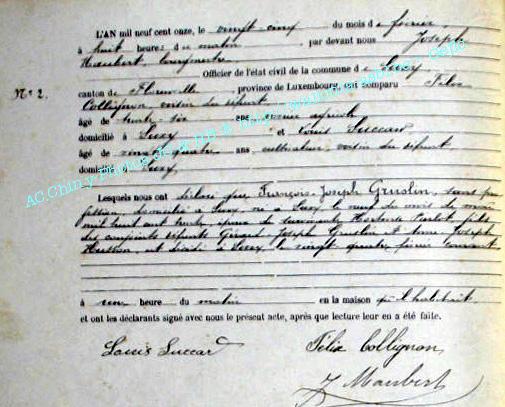 L'AN mil neuf cent onze, le vingt-cinq du mois de février
à huit heures du matin par devant nous Joseph
Maubert bourgmestre
Officier de l'état civil de la commune de Suxy
N° 2. canton de Florenville province de Luxembourg, est comparu Félix
Collignon voisin du défunt
âgé de trente-six ans
domicilié à Suxy et Louis Succard
âgé de vingt quatre ans cultivateur, voisin du défunt
domicilié à Suxy
Lesquels nous ont déclaré que François-Joseph Gruslin, sans pro
fession, domicilié à Suxy, né à Suxy le neuf du mois de
mil huit cent trente, époux de Hortense Parlot, fils
des conjoints défunts Gérard Joseph Gruslin et Anne Joseph
Husson, est décédé à Suxy, le vingt quatre février courant
à une heure du matin en la maison qu'il habitait
et ont les déclarants signé avec nous le présent acte, après que lecture leur en a été faite.
Louis Succard Félix Collignon
J Maubert